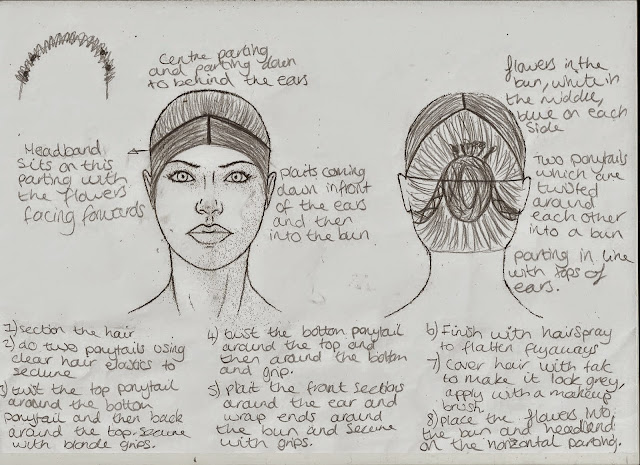 Centre parting
and parting down
to behind the ears
Headband
sits on this
parting with
the flowers
facing forwards
plaits coming
down infront
of the ears
and then
into the bun
flowers in the
bun, white in
the middle,
blue on each
side
Two ponytails
which are
twisted
around
each other
into a bun
parting in line
with tops of
ears.
1) section the hair
2) do two ponytails using
clear hair elastics to
secure
3) twist the top ponytail
around the bottom
ponytail and then back
around the top. Secure
with blonde grips.
4) twist the bottom ponytail
around the top and
then around the bottom
and grip.
5) plait the front sections
around the ear and
wrap ends around
the bun and secure
with grips.
6) Finish with hairspray
to flatten flyaways
7) cover hair with talc
to make it look grey,
apply with a makeup
brush.
8) place the flowers into
the bun and headband
on the horizontal parting.